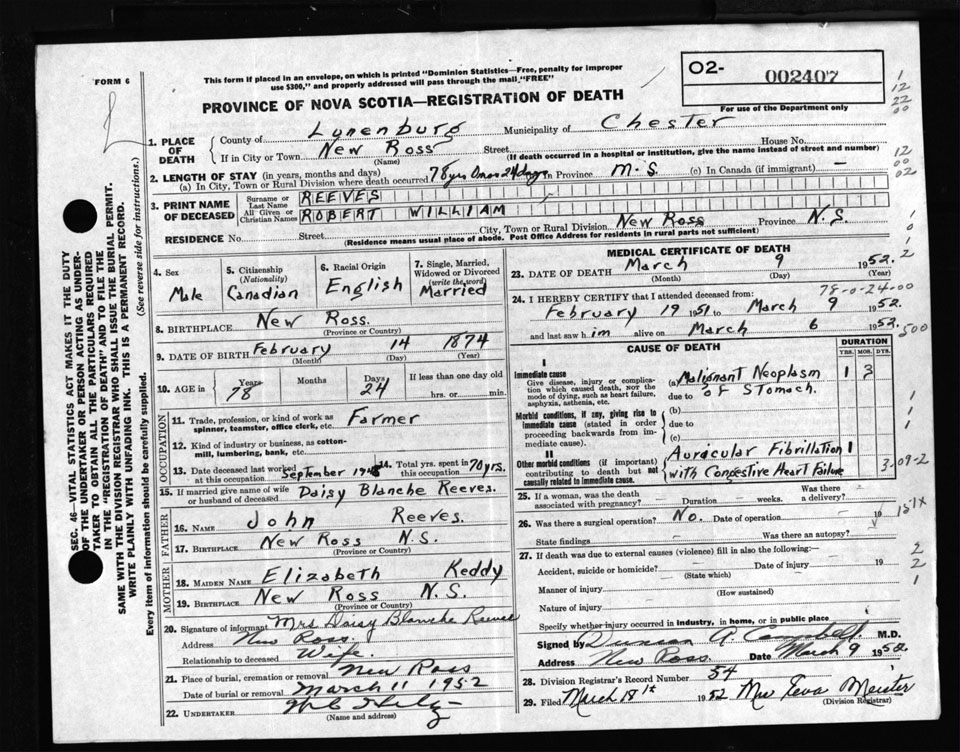 FORM 6
This form if placed in an envelope, on which is printed "Dominion Statistics—Free, penalty for improper
use $300," and properly addressed will pass through the mail, "FREE"
PROVINCE OF NOVA SCOTIA—REGISTRATION OF DEATH
O2- 002407
For use of the Department only
1. PLACE OF DEATH
County of Lunenburg Municipality of Chester
If in City or Town New Ross Street House No.
(Name) (If death occurred in a hospital or institution, give the name instead of street and number)
2. LENGTH OF STAY (in years, months and days)
(a) In City, Town or Rural Division where death occurred 78yrs 0mos 24days in Province (c) In Canada (if immigrant) —
3. PRINT NAME OF DECEASED
Surname or Last Name REEVES
All Given or Christian Names ROBERT WILLIAM
RESIDENCE No. Street City, Town or Rural Division New Ross Province N.S
(Residence means usual place of abode. Post Office Address for residents in rural parts not sufficient)
4. Sex Male
5. Citizenship (Nationality) Canadian
6. Racial Origin English
7. Single, Married, Widowed or Divorced (write the word) Married
8. BIRTHPLACE New Ross.
(Province or Country)
9. DATE OF BIRTH February 14 1874
(Month) (Day) (Year)
10. AGE in Years 78 Months Days 24 If less than one day old
hrs. or min.
OCCUPATION
11. Trade, profession, or kind of work as spinner, teamster, office clerk, etc. Farmer
12. Kind of industry or business, as cotton-mill, lumbering, bank, etc.
13. Date deceased last worked at this occupation September
14. Total yrs. spent in this occupation 70 yrs.
15. If married give name of wife or husband of deceased Daisy Blanche Reeves.
FATHER
16. NAME John Reeves.
17. BIRTHPLACE New Ross N.S.
(Province or Country)
MOTHER
18. MAIDEN NAME Elizabeth Keddy
19. BIRTHPLACE New Ross N.S.
(Province or Country)
20. Signature of informant Mrs Daisy Blanche Reeves
Address New Ross.
Relationship to deceased Wife.
21. Place of burial, cremation or removal New Ross
Date of burial or removal March 11 1952
22. UNDERTAKER
(Name and address)
MEDICAL CERTIFICATE OF DEATH
23. DATE OF DEATH March 9 1952.
(Month) (Day) (Year)
78-0-24-00
24. I HEREBY CERTIFY that I attended deceased from:
February 19 1951 to March 9 1952.
and last saw him alive on March 6 1952.
CAUSE OF DEATH
DURATION
YRS. MOS. DYS.
I
Immediate cause
Give disease, injury or complication which caused death, NOT the mode of dying, such as heart failure, asphyxia, asthenia, etc.
(a) Malignant Neoplasm 1 3
due to of Stomach.
Morbid conditions, if any, giving rise to immediate cause (stated in order proceeding backwards from immediate cause).
(b)
due to
(c)
II
Other morbid conditions (if important) contributing to death but not causally related to immediate cause.
Auricular Fibrillation 1
with Congestive Heart Failure
25. If a woman, was the death associated with pregnancy? Duration weeks. Was there a delivery?
26. Was there a surgical operation? No. Date of operation 19
State findings Was there an autopsy?
27. If death was due to external causes (violence) fill in also the following:—
Accident, suicide or homicide? Date of injury 19
(State which)
Manner of injury
(How sustained)
Nature of injury
Specify whether injury occurred in industry, in home, or in public place
Signed by Duncan A Campbell. M.D.
Address New Ross. Date March 9 1952
28. Division Registrar's Record Number 54
29. Filed March 18 1952 Mrs Teva Meister
(Division Registrar)
SEC. 46—VITAL STATISTICS ACT MAKES IT THE DUTY
OF THE UNDERTAKER OR PERSON ACTING AS UNDER-
TAKER TO OBTAIN ALL THE PARTICULARS REQUIRED
IN THE "REGISTRATION OF DEATH" AND TO FILE THE
SAME WITH THE DIVISION REGISTRAR WHO SHALL ISSUE THE BURIAL PERMIT.
WRITE PLAINLY WITH UNFADING INK. THIS IS A PERMANENT RECORD.
Every item of information should be carefully supplied. (See reverse side for instructions.)